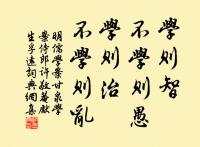 學則智
不學則愚
學則治
不學則亂
明儒學案甘泉學
案侍郎許敬菴先
生孚遠詞典網集